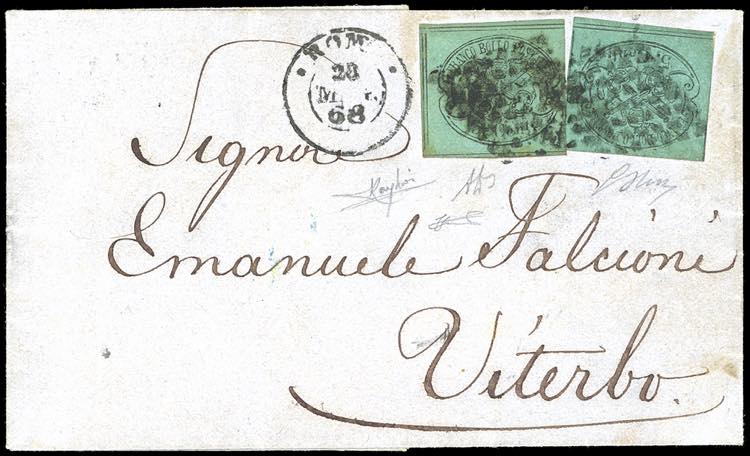 ROMA
28
68
FRANCO BOLLO POSTALE
Signore
Emanuele Falcioni
Viterbo.